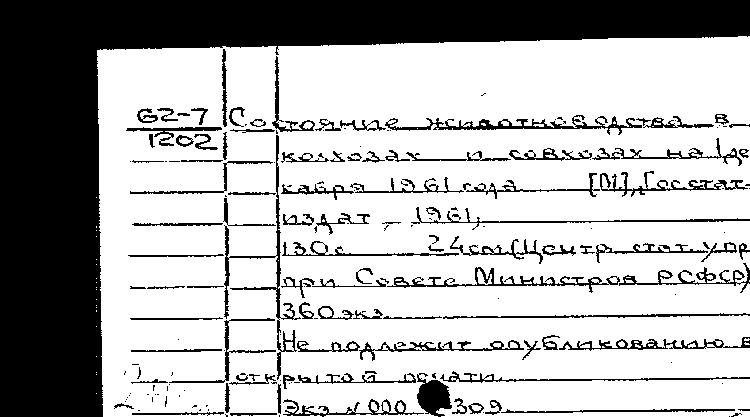 62-7 Состояние животноводства в
1202
колхозах и совхозах на 1 де-
кабря 1961 года [М], Госстат-
издат, 1961,
130 с. 24 см (Центр. стат. упр.
при Совете Министров РСФСР)
360 экз.
Не подлежит опубликованию в
открытой печати.
Экз № 000 309.